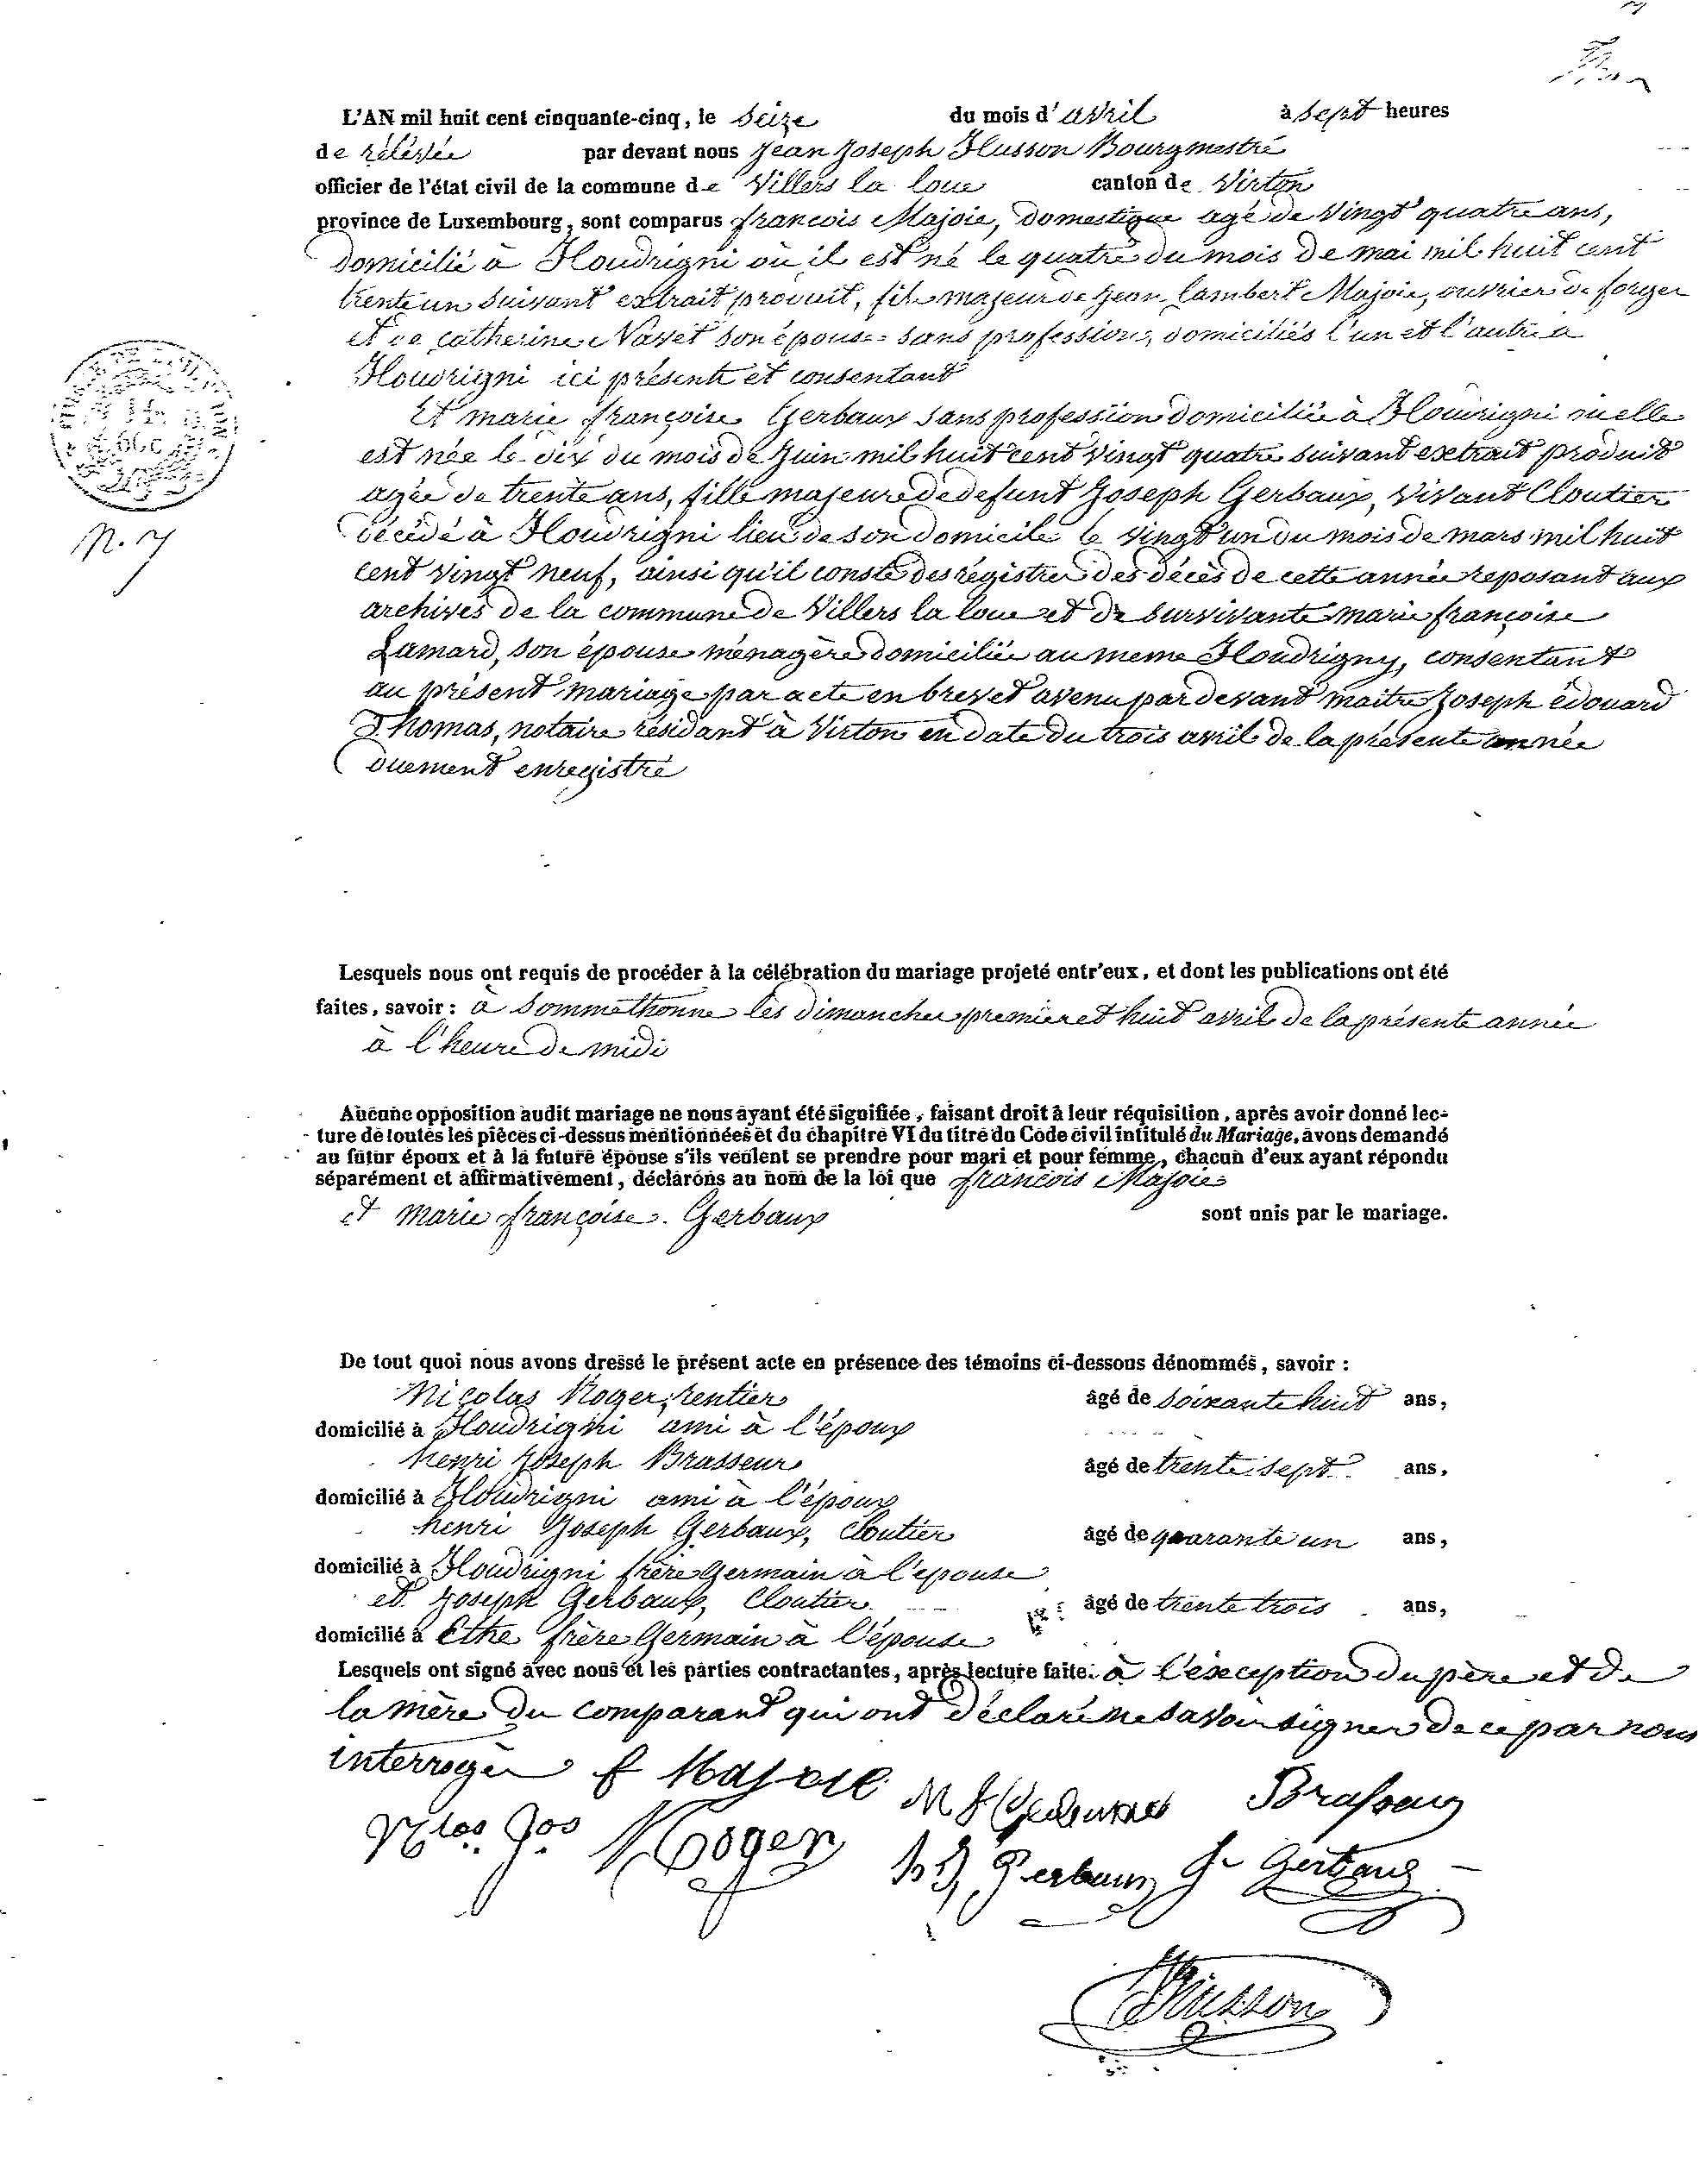 L'AN mil huit cent cinquante-cinq, le Seize du mois d'avril à Sept heures
de rélévée par devant nous Jean Joseph Husson Bourgmestre
officier de l'état civil de la commune de Villers la loue canton de Virton
province de Luxembourg, sont comparus francois Majoie, Domestique agé de Vingt quatre ans,
Domicilié à Houdrigni où il est né le quatre du mois de mai mil huit cent
trente un suivant extrait produit, fils majeur de Jean Lambert Majoie, ouvrier de forges
et de Catherine Navet son épouse sans profession, domiciliés l'un et l'autre à
Houdrigni ici présents et consentant
Et marie françoise Gerbaux sans profession domiciliée à Houdrigni où elle
est née le dix du mois de Juin mil huit cent vingt quatre suivant extrait produit
agée de trente ans, fille majeure de defunt Joseph Gerbaux, vivant Cloutier
décédé à Houdrigni lieu de son domicile le vingt un du mois de mars mil huit
cent vingt neuf, ainsi qu'il conste des régistres des décès de cette année reposant aux
archives de la commune de Villers la loue et de survivante marie françoise
Lamard, son épouse ménagère domiciliée au meme Houdrigny, consentant
au présent mariage par acte en brevet avenu par devant maitre Joseph édouard
Thomas, notaire résidant à Virton en date du trois avril de la présente année
duement enregistré
Lesquels nous ont requis de procéder à la célébration du mariage projeté entr'eux, et dont les publications ont été
faites, savoir : à Sommethonne les dimanches premier et huit avril de la présente année
à l'heure de midi
Aucune opposition audit mariage ne nous ayant été signifiée, faisant droit à leur réquisition, après avoir donné lec-
ture de toutes les pièces ci-dessus mentionnées et du chapitre VI du titre du Code civil intitulé du Mariage, avons demandé
au futur époux et à la future épouse s'ils veulent se prendre pour mari et pour femme, chacun d'eux ayant répondu
séparément et affirmativement, déclarons au nom de la loi que francois Majoie
et Marie françoise Gerbaux sont unis par le mariage.
N. 7
De tout quoi nous avons dressé le présent acte en présence des témoins ci-dessous dénommés, savoir :
Nicolas Roger, rentier âgé de soixante huit ans,
domicilié à Houdrigni ami à l'époux
henri Joseph Brasseur âgé de trente sept ans,
domicilié à Houdrigni ami à l'époux
henri Joseph Gerbaux, Cloutier âgé de quarante un ans,
domicilié à Houdrigni frère Germain à l'épouse
et Joseph Gerbaux, Cloutier âgé de trente trois ans,
domicilié à Ethe frère Germain à l'épouse
Lesquels ont signé avec nous et les parties contractantes, après lecture faite à l'exception du père et de
la mère du comparant qui ont déclaré ne savoir signer de ce par nous
interrogés f Majoie M f Gerbaux Brasseur
Nlas Jos Roger h J Gerbaux J Gerbaux
Husson